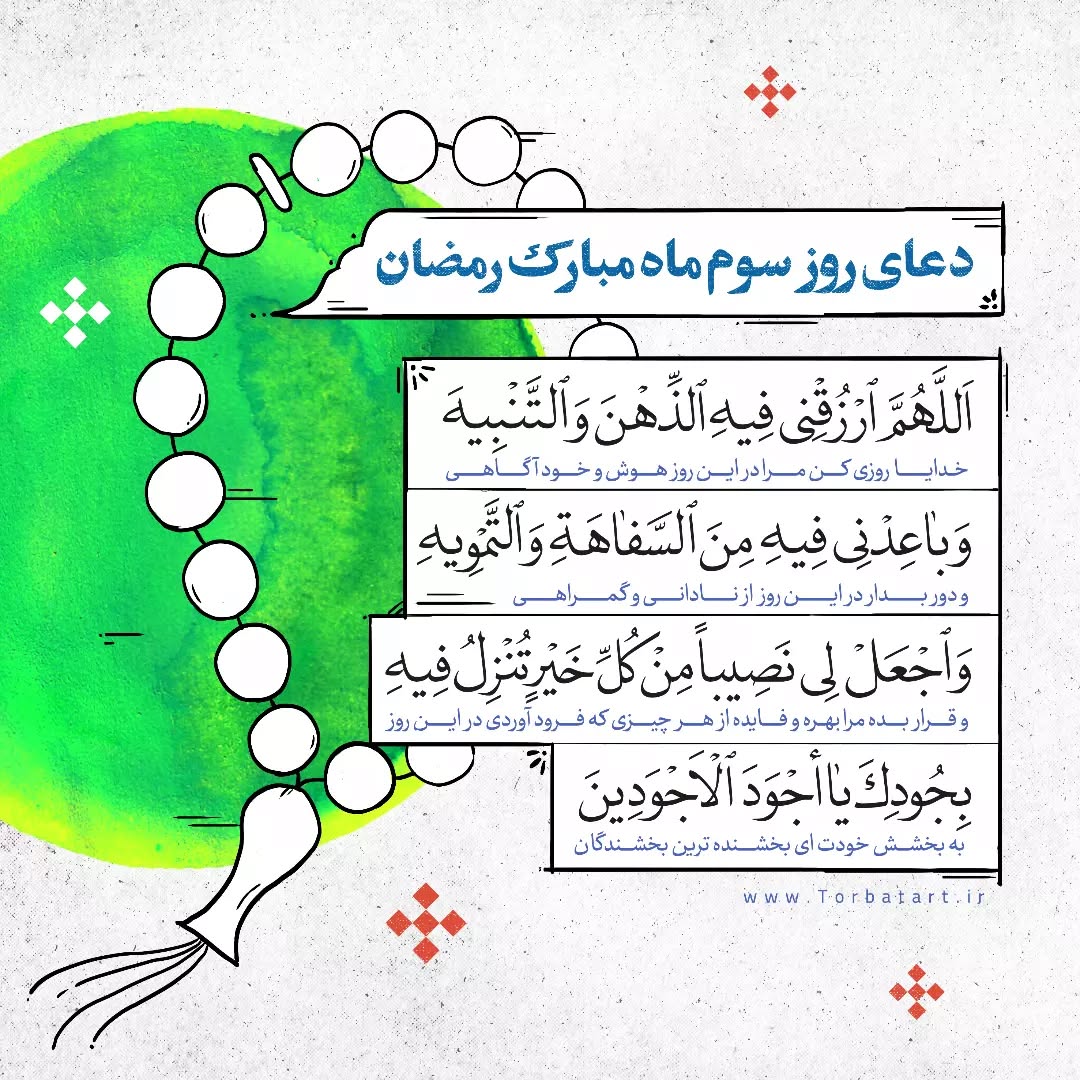 دعای روز سوم ماه مبارک رمضان
اَللَّهُمَّ ٱرْزُقْنِی فِیهِ ٱلذِّهْنَ وَٱلتَّنْبِیهَ
خدایا روزی کن مرا در این روز هوش و خودآگاهی
وَبٰاعِدْنِی فِیهِ مِنَ ٱلسَّفٰاهَةِ وَٱلتَّمْوِیهِ
و دور بدار در این روز از نادانی و گمراهی
وَٱجْعَلْ لِی نَصِیباً مِنْ کُلِّ خَیْرٍ تُنْزِلُ فِیهِ
و قرار بده مرا بهره و فایده از هر چیزی که فرود آوردی در این روز
بِجُودِكَ یٰا أَجْوَدَ ٱلْاَجْوَدِینَ
به بخشش خودت ای بخشنده ترین بخشندگان
www.Torbatart.ir